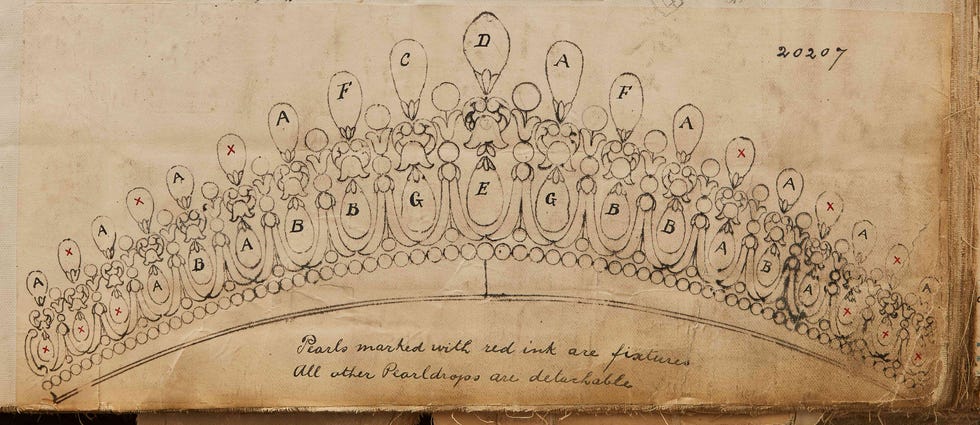 20207
A x A x A x A F C D A F A x A x A x A
x x x A B A B B G E G B B A B A x x x
Pearls marked with red ink are fixtures
All other Pearldrops are detachable